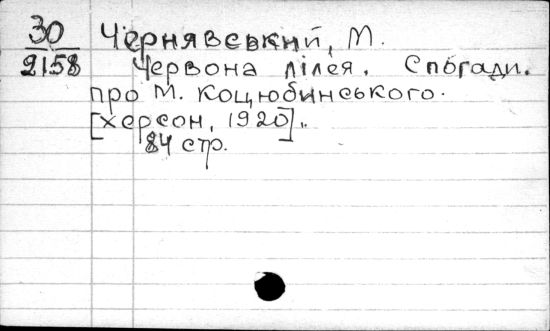 30 Чернявський, М.
2158 Червона лілея. Спогади.
про М. Коцюбинського.
[Херсон, 1920].
84 стр.